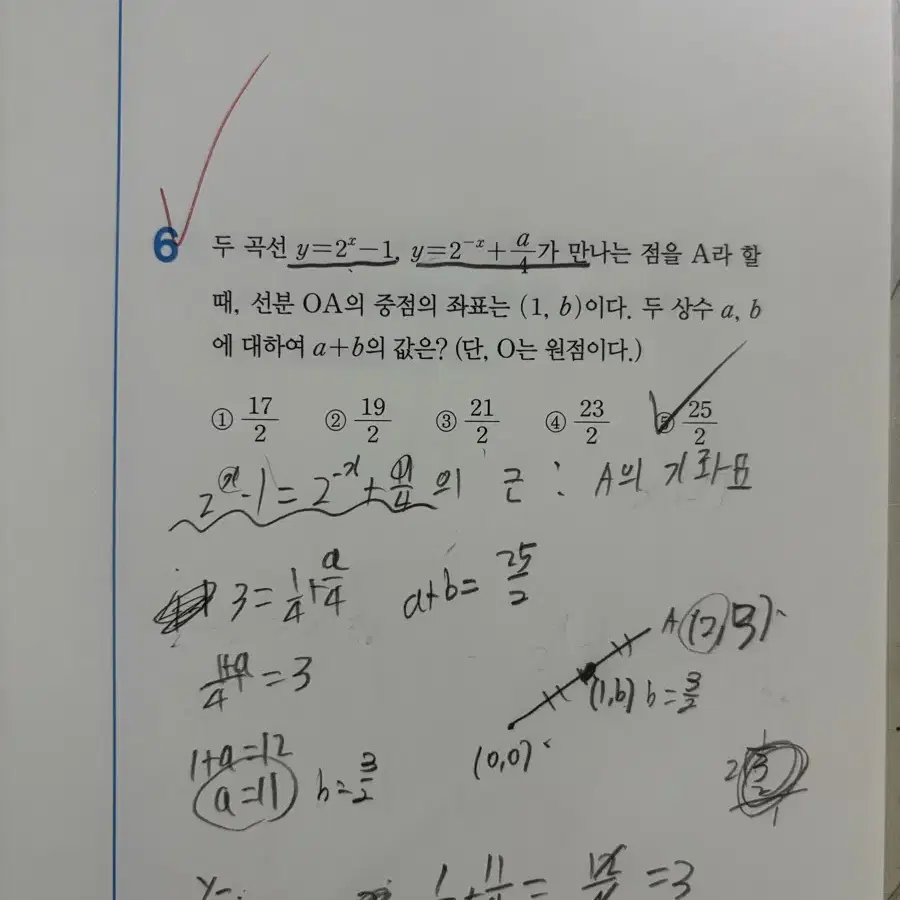 6 두 곡선 y=2^x-1, y=2^-x+a/4가 만나는 점을 A라 할
때, 선분 OA의 중점의 좌표는 (1, b)이다. 두 상수 a, b
에 대하여 a+b의 값은? (단, O는 원점이다.)
① 17/2 ② 19/2 ③ 21/2 ④ 23/2 ⑤ 25/2
2^x-1=2^-x+a/4의 근 : A의 x좌표
3=1/4+a/4 a+b=25/2
A(2,3)
(1+a)/4=3
(1,b) b=3/2
1+a=12
(0,0)
a=11 b=3/2
=3